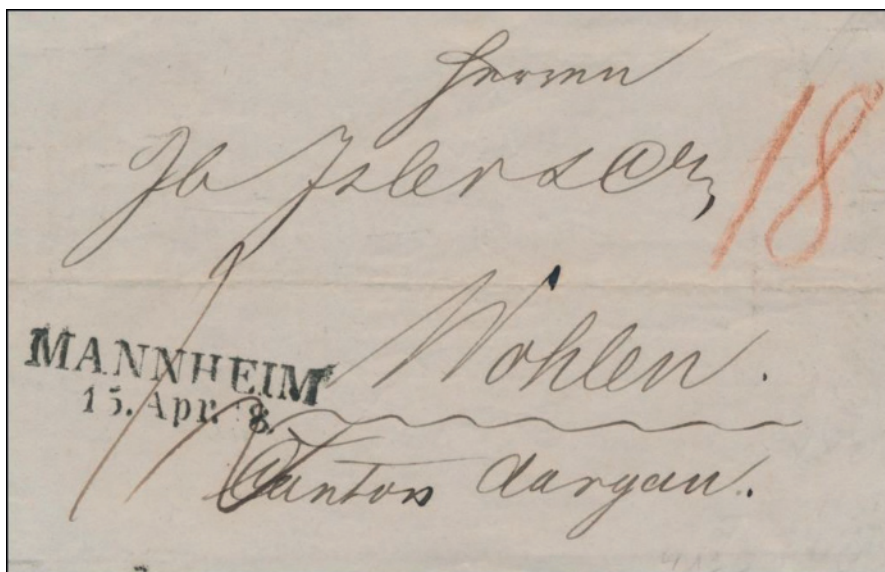 Herren
Jb Isler & Co
18
Wohlen.
MANNHEIM
15. Apr. 8.
Canton Aargau.